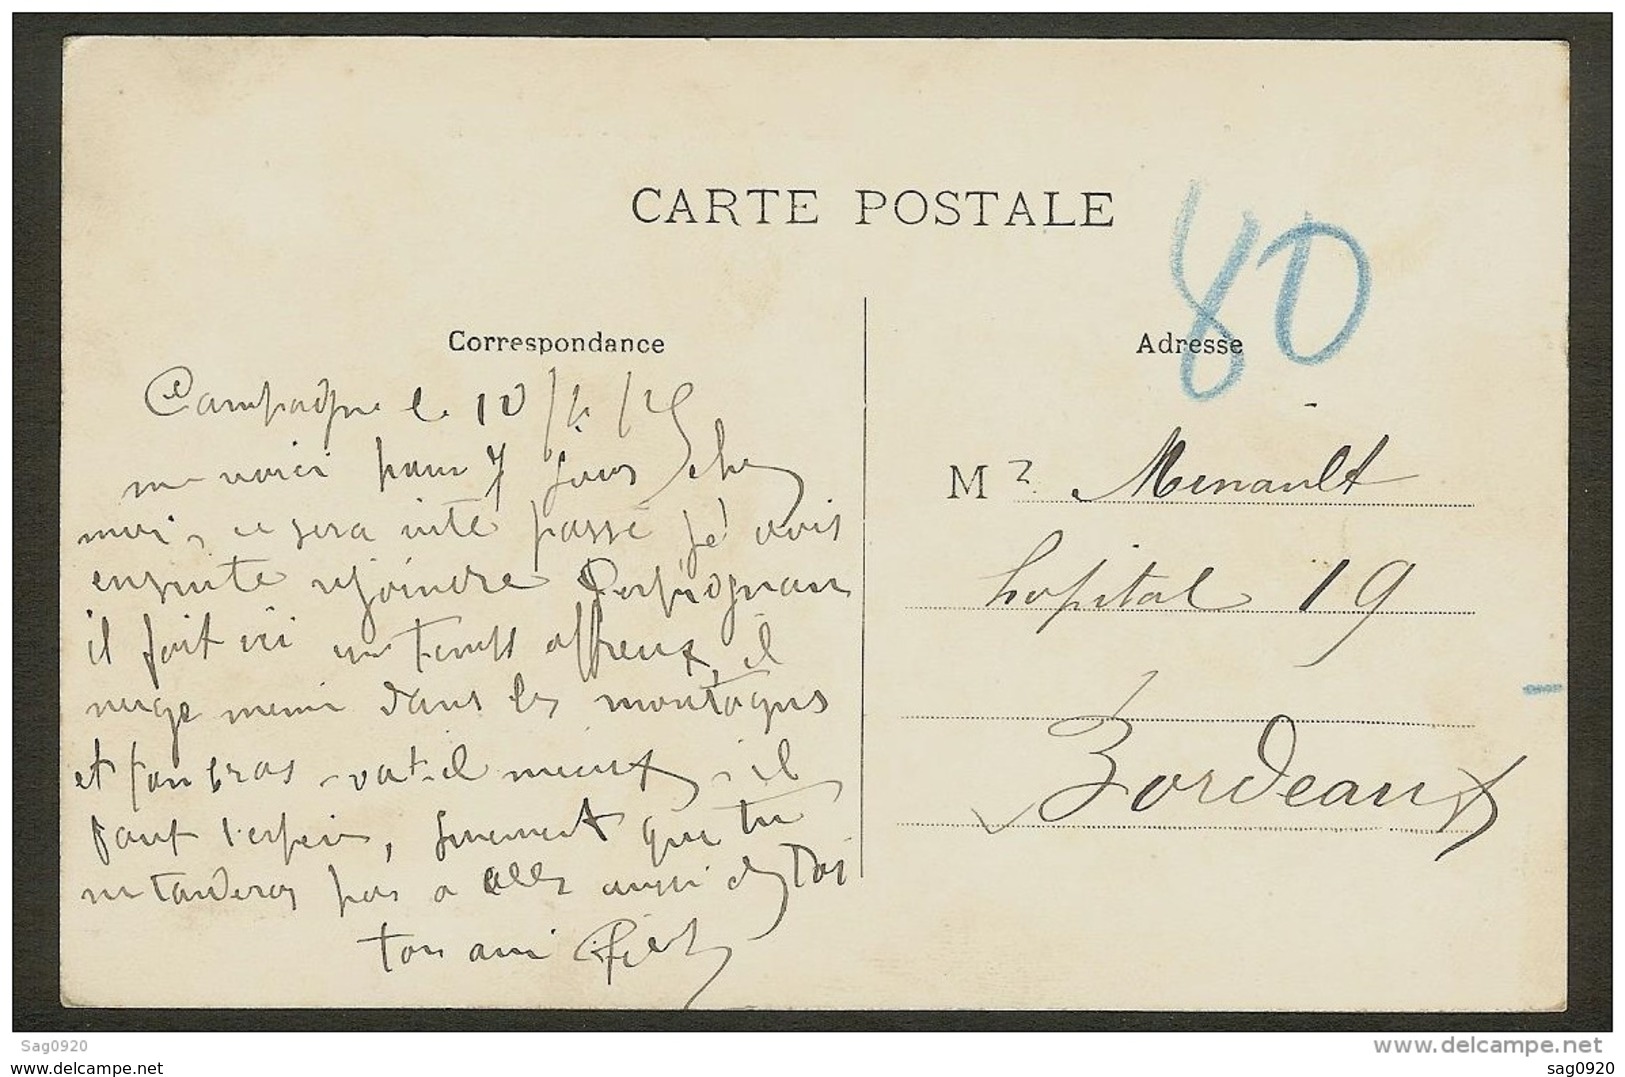 CARTE POSTALE
80
Correspondance
Adresse
Campagne le 10/4/15
me voici pour 7 jours chez
moi, ce sera vite passé je vais
ensuite rejoindre Perpignan
il fait ici un temps affreux, il
neige meme dans les montagnes
et ton bras, vat-il mieux, il
faut l'esperer, surement que tu
ne tarderas pas a aller aussi chez Toi
ton ami
Mr Menault
hopital 19
Bordeaux
Sag0920
www.delcampe.net
sag0920
sag0920